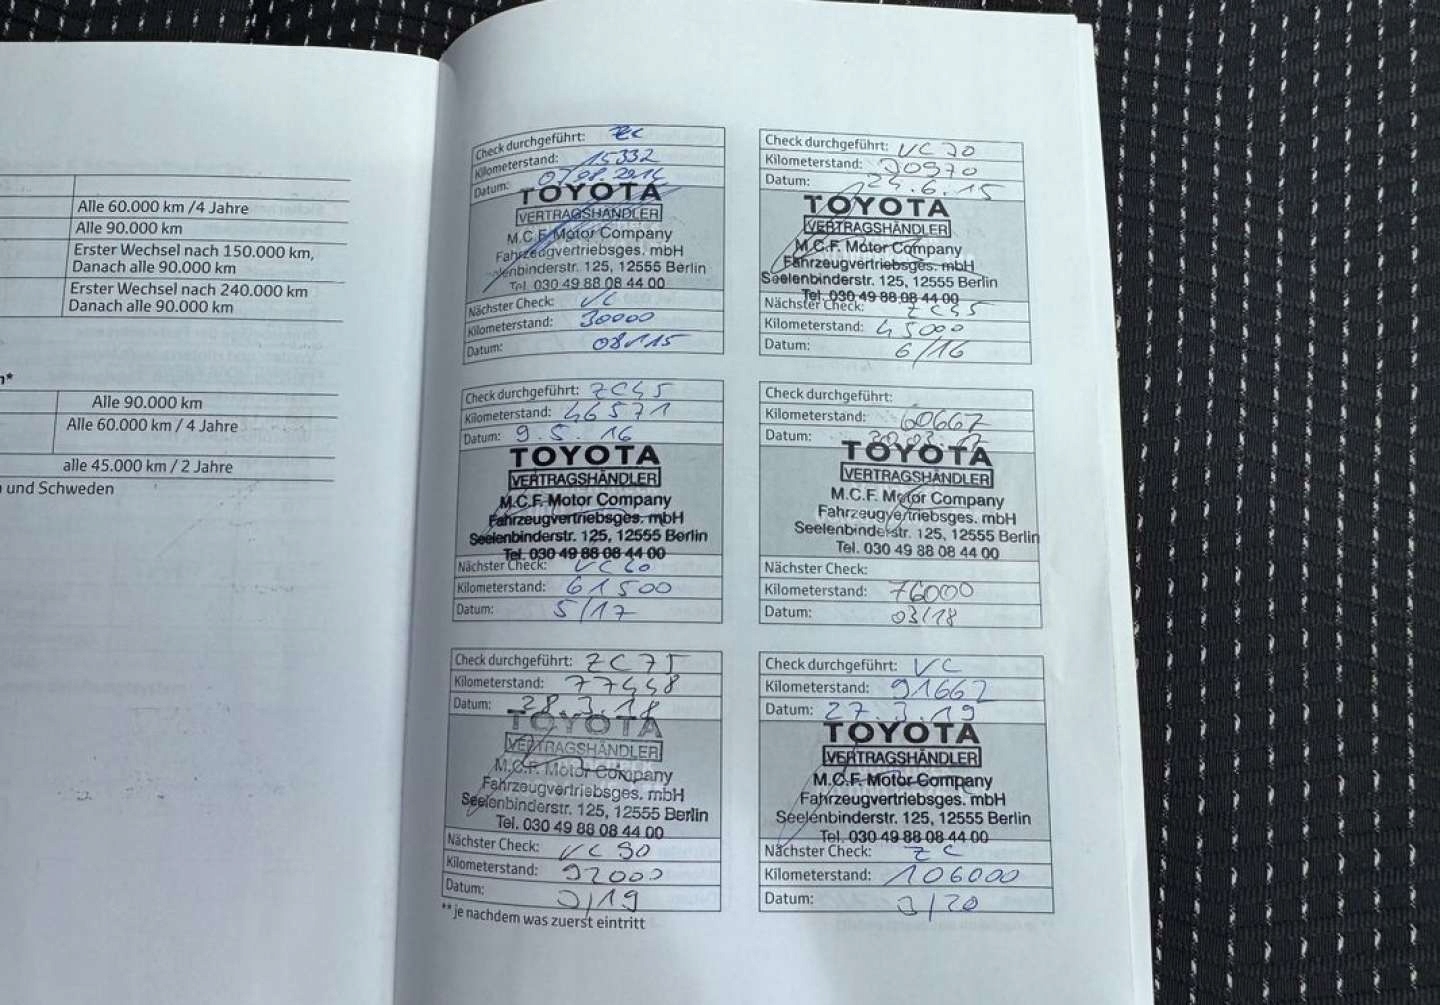 Alle 60.000 km /4 Jahre
Alle 90.000 km
Erster Wechsel nach 150.000 km,
Danach alle 90.000 km
Erster Wechsel nach 240.000 km
Danach alle 90.000 km
n*
Alle 90.000 km
Alle 60.000 km / 4 Jahre
alle 45.000 km / 2 Jahre
und Schweden
Check durchgeführt: ZC
Kilometerstand: 15332
Datum:
TOYOTA
VERTRAGSHÄNDLER
M.C.F. Motor Company
Fahrzeugvertriebsges. mbH
elenbinderstr. 125, 12555 Berlin
Tel. 030 49 88 08 44 00
Nächster Check: VC
Kilometerstand: 30000
Datum: 08/15
Check durchgeführt: VC
Kilometerstand:
Datum: 24.6.15
TOYOTA
VERTRAGSHÄNDLER
M.C.F. Motor Company
Fahrzeugvertriebsges. mbH
Seelenbinderstr. 125, 12555 Berlin
Tel. 030 49 88 08 44 00
Nächster Check: ZC45
Kilometerstand: 45000
Datum: 6/16
Check durchgeführt: ZC45
Kilometerstand: 46571
Datum: 9.5.16
TOYOTA
VERTRAGSHÄNDLER
M.C.F. Motor Company
Fahrzeugvertriebsges. mbH
Seelenbinderstr. 125, 12555 Berlin
Tel. 030 49 88 08 44 00
Nächster Check: VC60
Kilometerstand: 61500
Datum: 5/17
Check durchgeführt:
Kilometerstand: 60667
Datum:
TOYOTA
VERTRAGSHÄNDLER
M.C.F. Motor Company
Fahrzeugvertriebsges. mbH
Seelenbinderstr. 125, 12555 Berlin
Tel. 030 49 88 08 44 00
Nächster Check:
Kilometerstand: 76000
Datum: 03/18
Check durchgeführt: ZC75
Kilometerstand: 77448
Datum: 28.3.18
TOYOTA
VERTRAGSHÄNDLER
M.C.F. Motor Company
Fahrzeugvertriebsges. mbH
Seelenbinderstr. 125, 12555 Berlin
Tel. 030 49 88 08 44 00
Nächster Check: VC90
Kilometerstand: 92000
Datum: 3/19
Check durchgeführt: VC
Kilometerstand: 91662
Datum: 27.3.19
TOYOTA
VERTRAGSHÄNDLER
M.C.F. Motor Company
Fahrzeugvertriebsges. mbH
Seelenbinderstr. 125, 12555 Berlin
Tel. 030 49 88 08 44 00
Nächster Check: ZC
Kilometerstand: 106000
Datum: 3/20
** je nachdem was zuerst eintritt